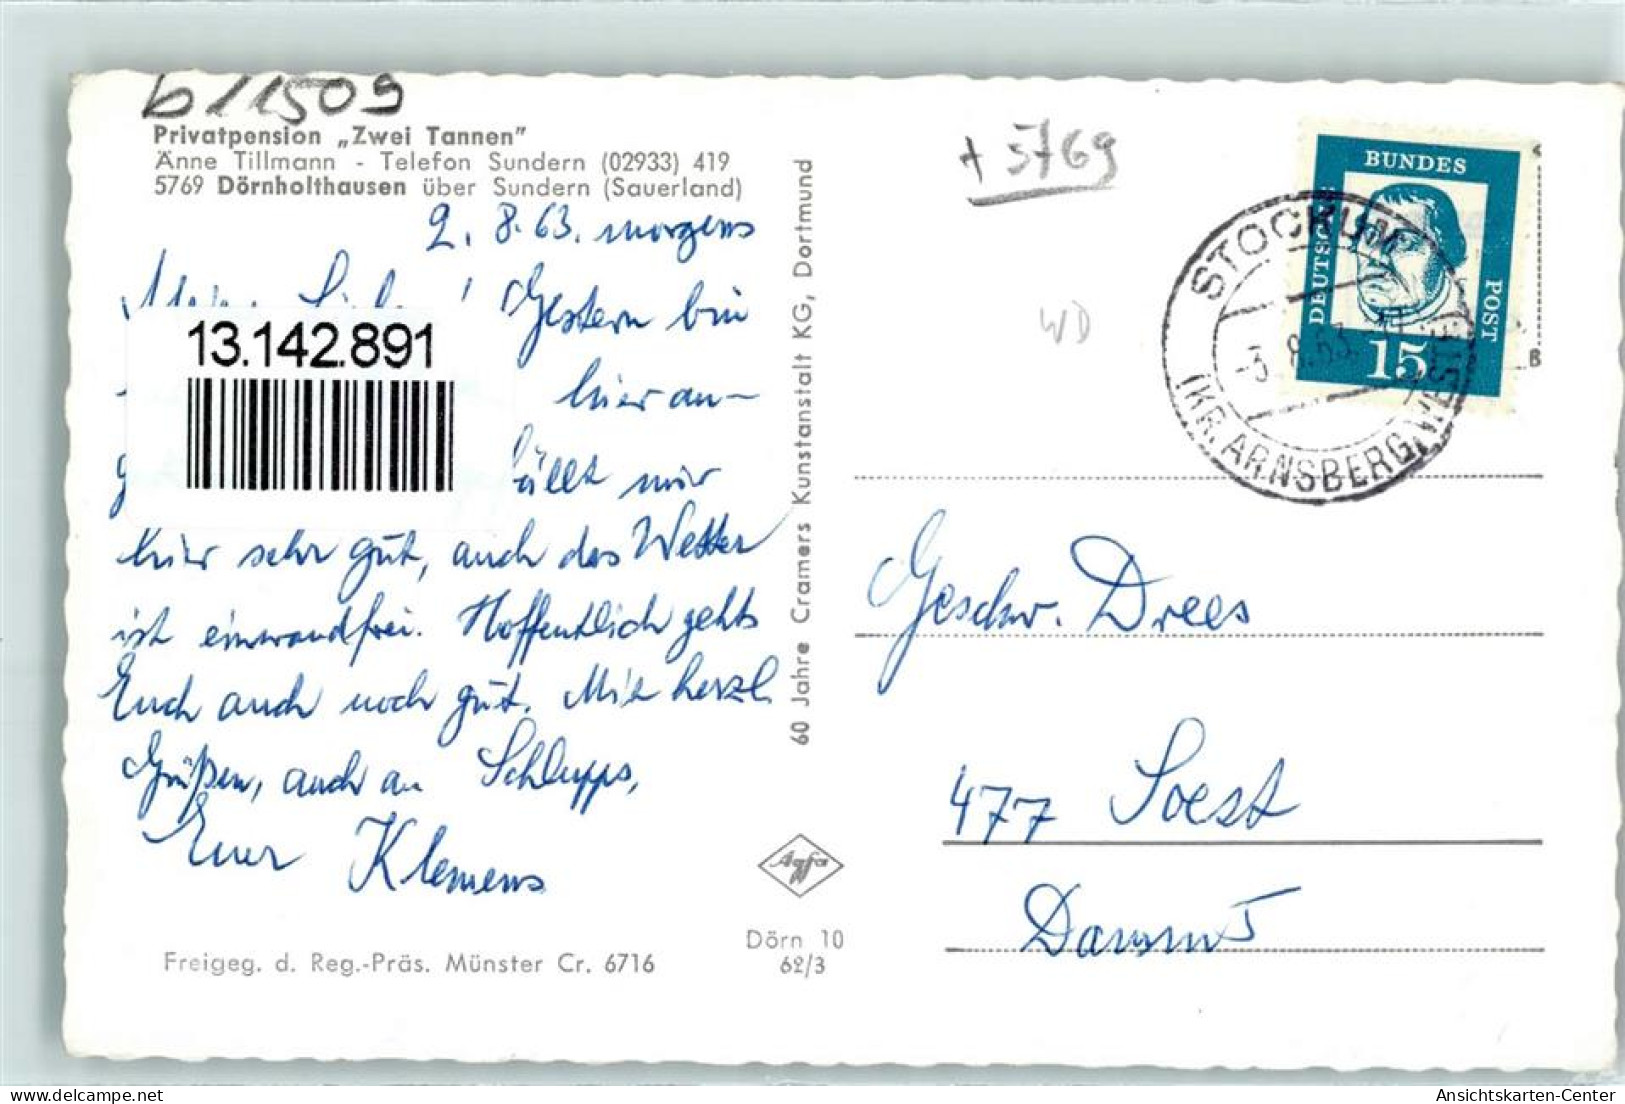 b11509
Privatpension „Zwei Tannen"
Änne Tillmann - Telefon Sundern (02933) 419
5769 Dörnholthausen über Sundern (Sauerland)
2. 8. 63. morgens
Gestern bin
13.142.891
hier an-
g
ällt mir
hier sehr gut, auch das Wetter
ist einwandfrei. Hoffentlich gehts
Euch auch noch gut. Mit herzl.
Grüßen, auch an Schlupps,
Euer Klemens
Freigeg. d. Reg.-Präs. Münster Cr. 6716
60 Jahre Cramers Kunstanstalt KG, Dortmund
Agfa
Dörn 10
62/3
+ 5769
WD
DEUTSCHE
BUNDES
POST
15
STOCKUM
-3.8.63
(KR. ARNSBERG, WESTF.)
B
Geschw. Drees
477 Soest
Ansichtskarten-Center